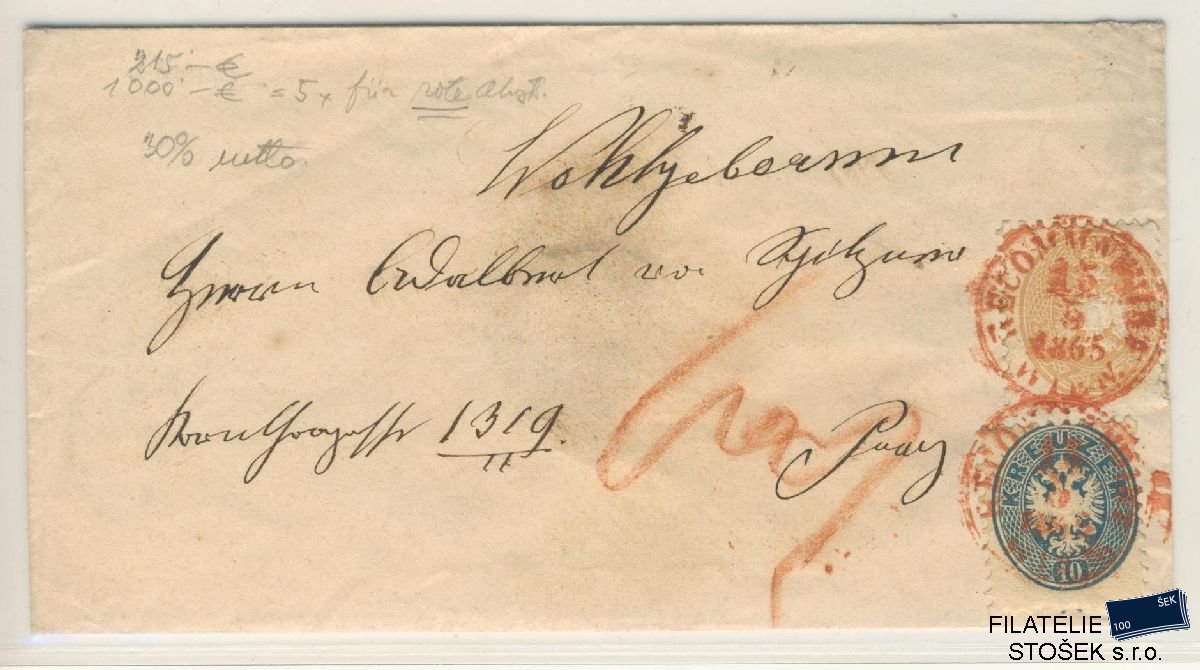 215.– €
1000.– € = 5x für rote Abst.
30% netto.
Wohlgeboren
Herrn Adalbert von
1319.
II
Prag
RECOMMANDIRT
15
9
1865
WIEN
KREUZER
10
FILATELIE
100 ŠEK
STOŠEK s.r.o.